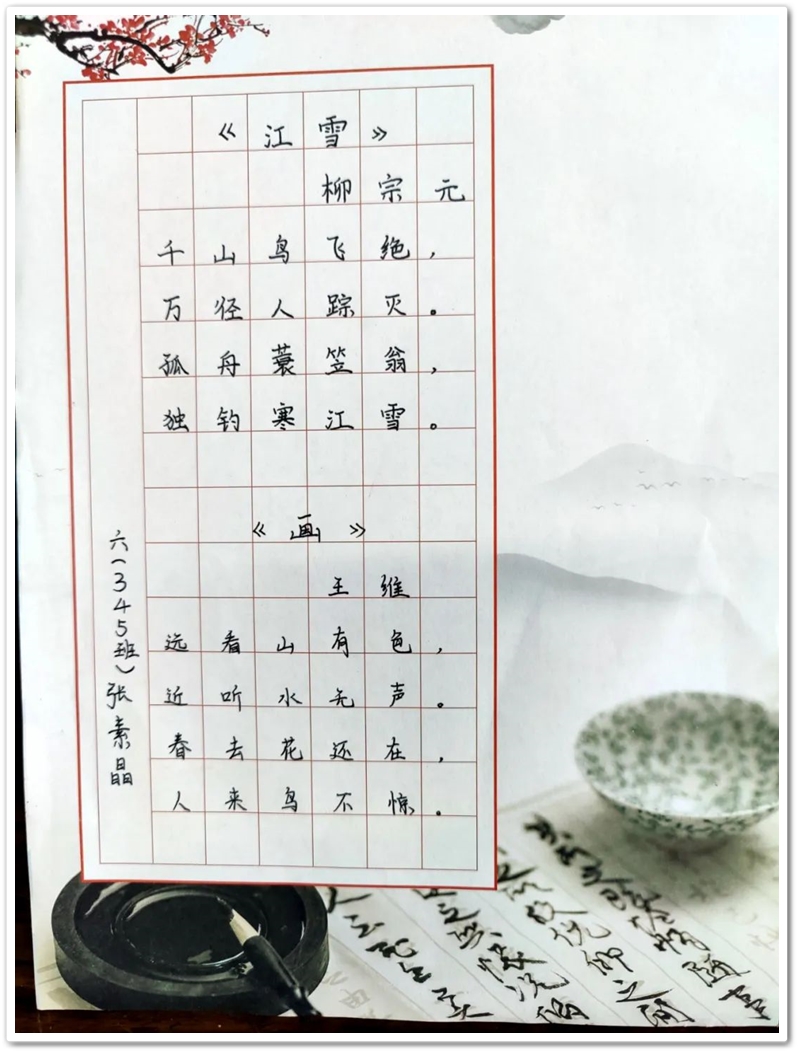 《江雪》
柳宗元
千山鸟飞绝，
万径人踪灭。
孤舟蓑笠翁，
独钓寒江雪。
《画》
王维
远看山有色，
近听水无声。
春去花还在，
人来鸟不惊。
六(345班)张素晶